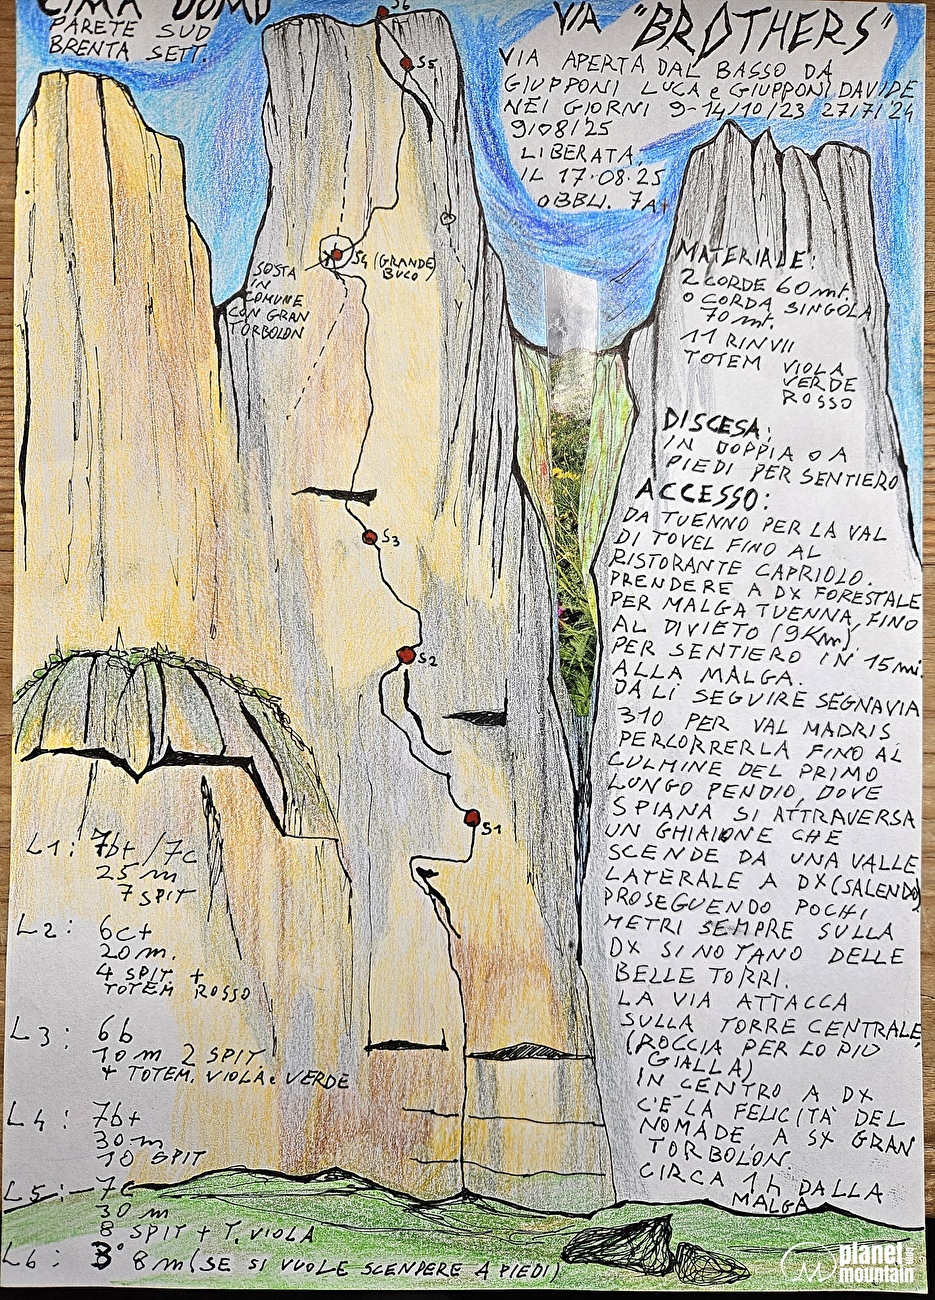 CIMA UOMO
PARETE SUD
BRENTA SETT.
VIA "BROTHERS"
VIA APERTA DAL BASSO DA
GIUPPONI LUCA e GIUPPONI DAVIDE
NEI GIORNI 9-14/10/23 27/7/24
9/08/25
LIBERATA
IL 17.08.25
OBBLI. 7A+
S6
S5
S4 (GRANDE
BUCO)
SOSTA
IN
COMUNE
CON GRAN
TORBOLON
S3
S2
S1
MATERIALE:
2 CORDE 60 mt.
O CORDA SINGOLA
70 mt.
11 RINVII
TOTEM VIOLA
VERDE
ROSSO
DISCESA:
IN DOPPIA O A
PIEDI PER SENTIERO
ACCESSO:
DA TUENNO PER LA VAL
DI TOVEL FINO AL
RISTORANTE CAPRIOLO.
PRENDERE A DX FORESTALE
PER MALGA TUENNA, FINO
AL DIVIETO (9Km),
PER SENTIERO IN 15 mi.
ALLA MALGA.
DA LÌ SEGUIRE SEGNAVIA
310 PER VAL MADRIS
PERCORRERLA FINO AL
CULMINE DEL PRIMO
LUNGO PENDIO, DOVE
SPIANA SI ATTRAVERSA
UN GHIAIONE CHE
SCENDE DA UNA VALLE
LATERALE A DX (SALENDO)
PROSEGUENDO POCHI
METRI SEMPRE SULLA
DX SI NOTANO DELLE
BELLE TORRI.
LA VIA ATTACCA
SULLA TORRE CENTRALE,
(ROCCIA PER LO PIÙ
GIALLA)
IN CENTRO A DX
C'È LA FELICITÀ DEL
NOMADE, A SX GRAN
TORBOLON.
CIRCA 1h DALLA
MALGA
L1: 7b+/7c
25 m
7 SPIT
L2: 6c+
20 m.
4 SPIT +
TOTEM ROSSO
L3: 6b
10 m 2 SPIT
+ TOTEM. VIOLA e VERDE
L4: 7b+
30 m
10 SPIT
L5: 7c
30 m
8 SPIT + T. VIOLA
L6: 3° 8 m (SE SI VUOLE SCENDERE A PIEDI)
planet
mountain
.com